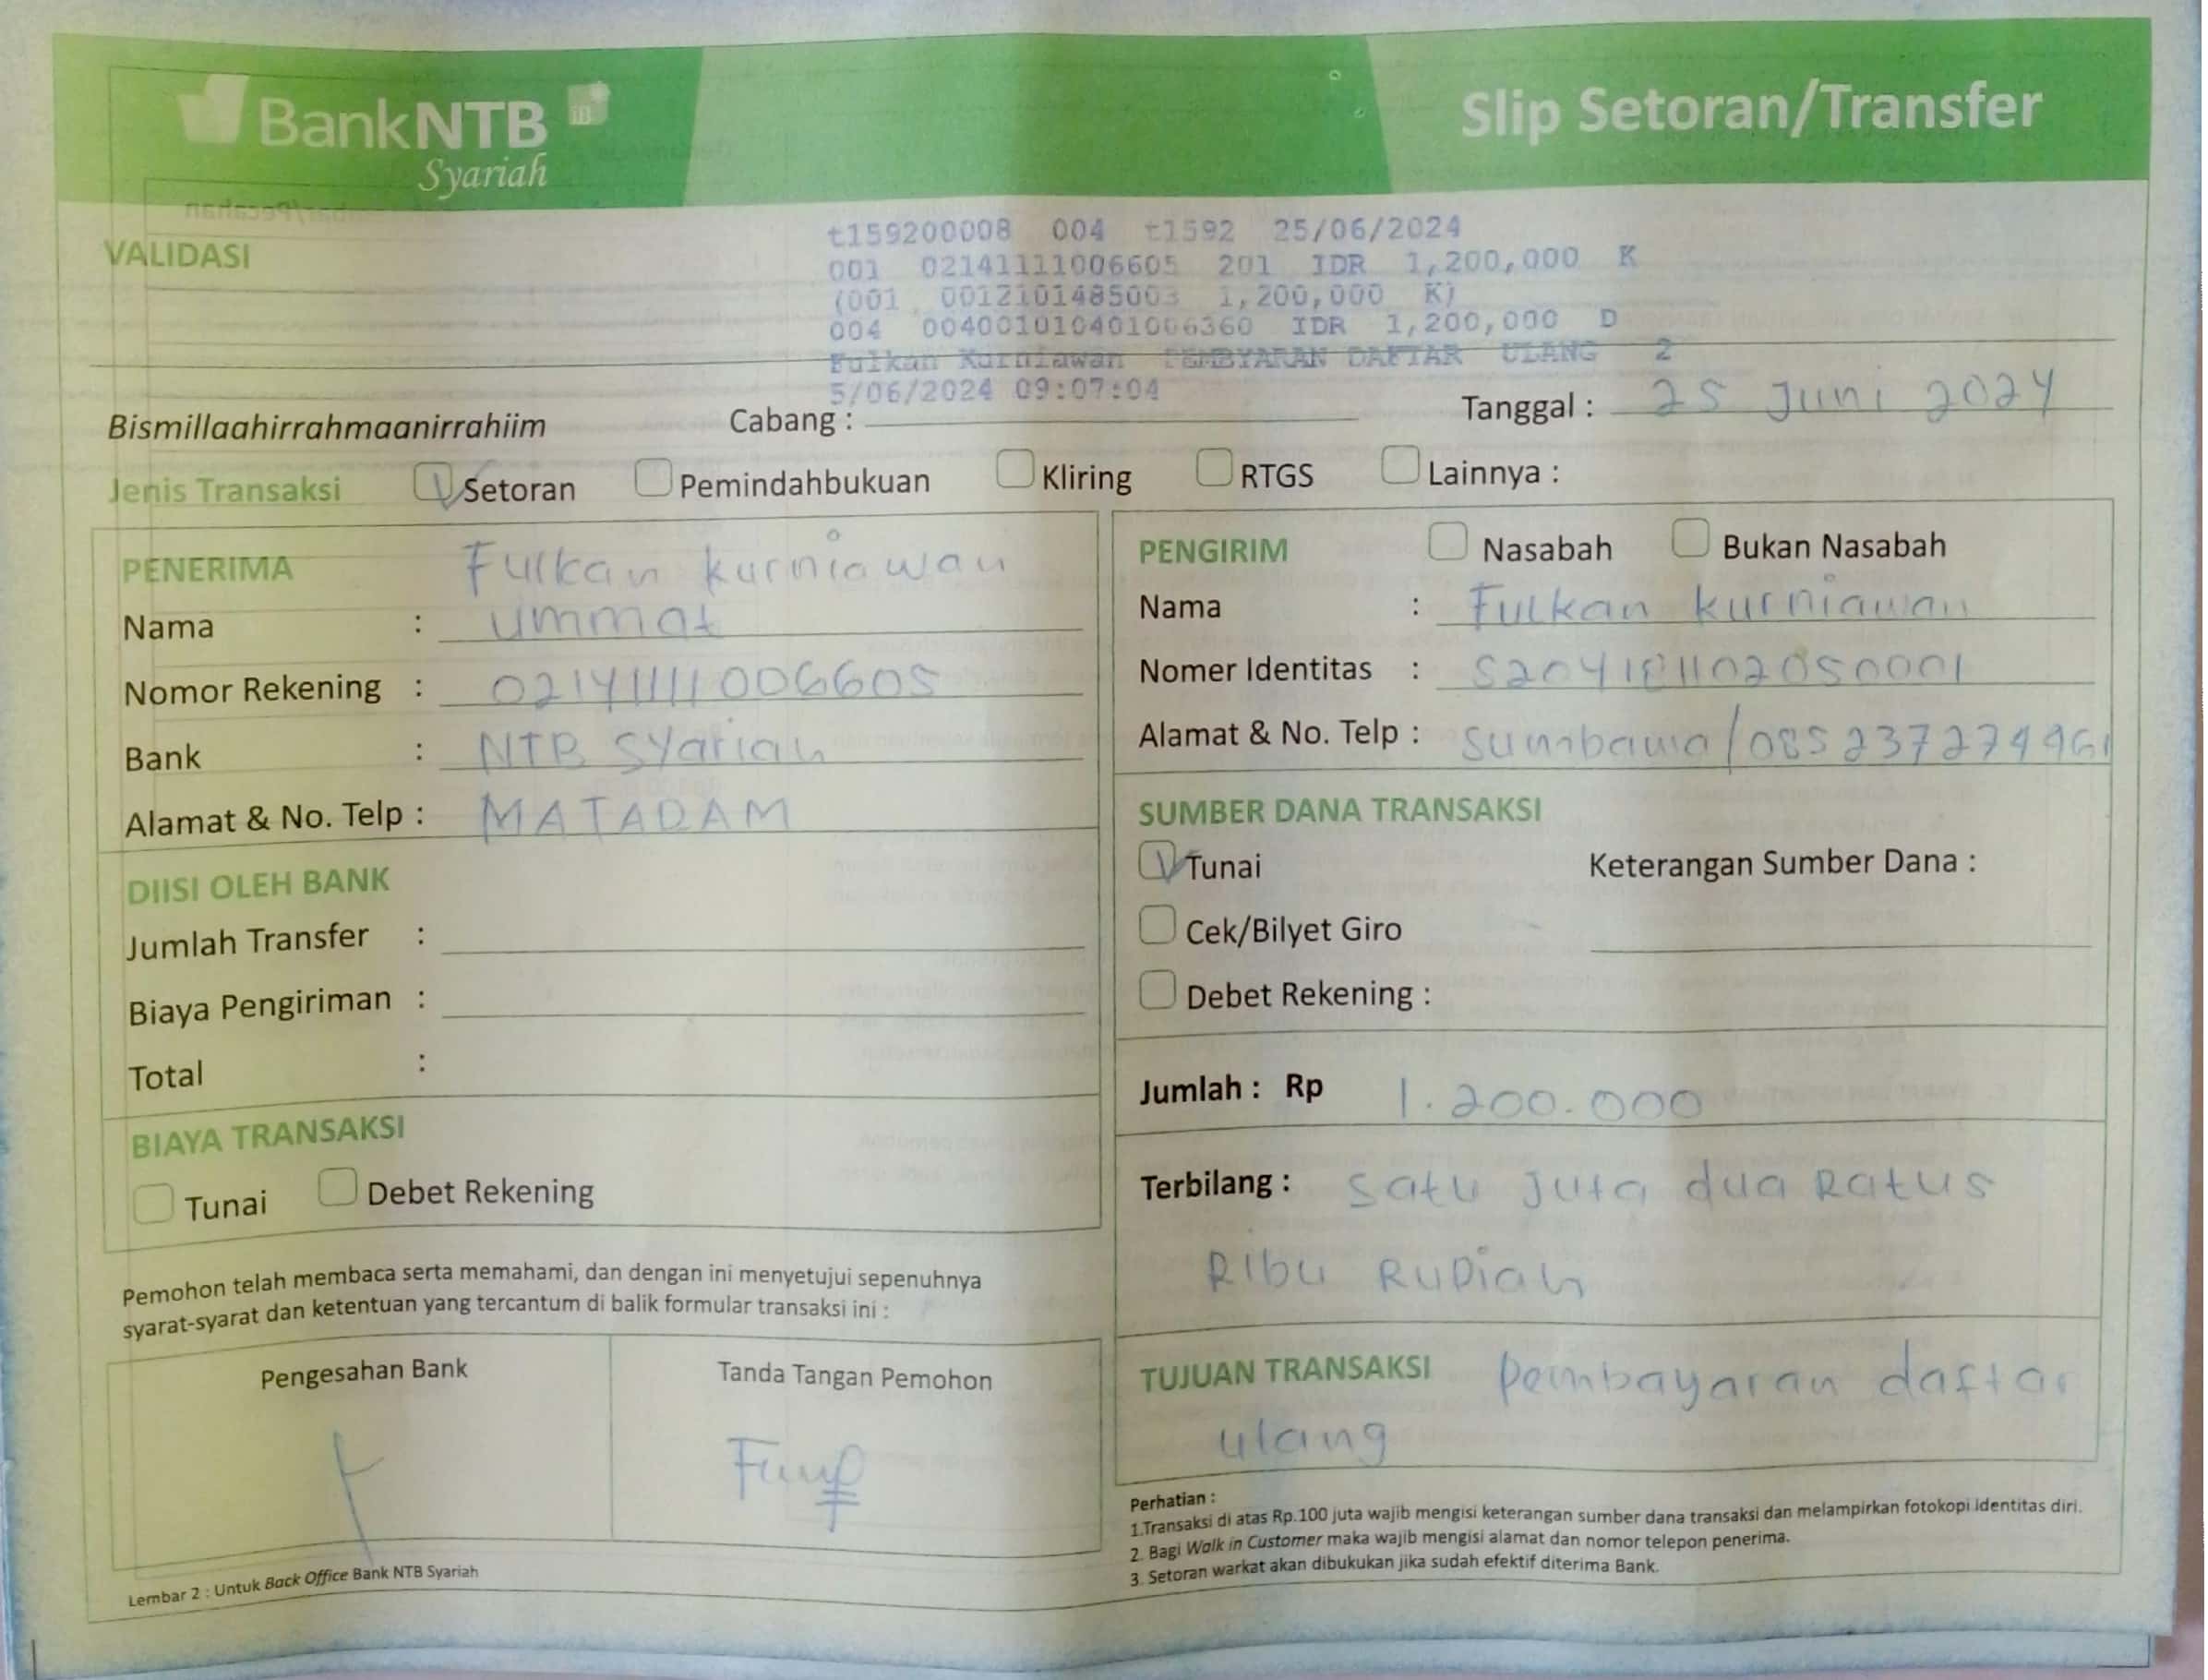 BankNTB
Syariah
Slip Setoran/Transfer
VALIDASI
t159200008 004 t1592 25/06/2024
001 02141111006605 201 IDR 1,200,000 K
(001 0012101485003 1,200,000 K)
004 004001010401006360 IDR 1,200,000 D
Fulkan Kurniawan PEMBYARAN DAFTAR ULANG 2
5/06/2024 09:07:04
Bismillaahirrahmaanirrahiim Cabang : Tanggal : 25 Juni 2024
Jenis Transaksi Setoran Pemindahbukuan Kliring RTGS Lainnya :
PENERIMA Fulkan kurniawan
Nama : ummat
Nomor Rekening : 02141111006605
Bank : NTB Syariah
Alamat & No. Telp : MATARAM
DIISI OLEH BANK
Jumlah Transfer :
Biaya Pengiriman :
Total :
BIAYA TRANSAKSI
Tunai Debet Rekening
Pemohon telah membaca serta memahami, dan dengan ini menyetujui sepenuhnya
syarat-syarat dan ketentuan yang tercantum di balik formular transaksi ini :
Pengesahan Bank Tanda Tangan Pemohon
Lembar 2 : Untuk Back Office Bank NTB Syariah
PENGIRIM Nasabah Bukan Nasabah
Nama : Fulkan kurniawan
Nomer Identitas :
Alamat & No. Telp : Sumbawa/
SUMBER DANA TRANSAKSI
Tunai Keterangan Sumber Dana :
Cek/Bilyet Giro
Debet Rekening :
Jumlah : Rp 1.200.000
Terbilang : Satu Juta dua Ratus
Ribu Rupiah
TUJUAN TRANSAKSI Pembayaran daftar
ulang
Perhatian :
1.Transaksi di atas Rp.100 juta wajib mengisi keterangan sumber dana transaksi dan melampirkan fotokopi identitas diri.
2. Bagi Walk in Customer maka wajib mengisi alamat dan nomor telepon penerima.
3. Setoran warkat akan dibukukan jika sudah efektif diterima Bank.